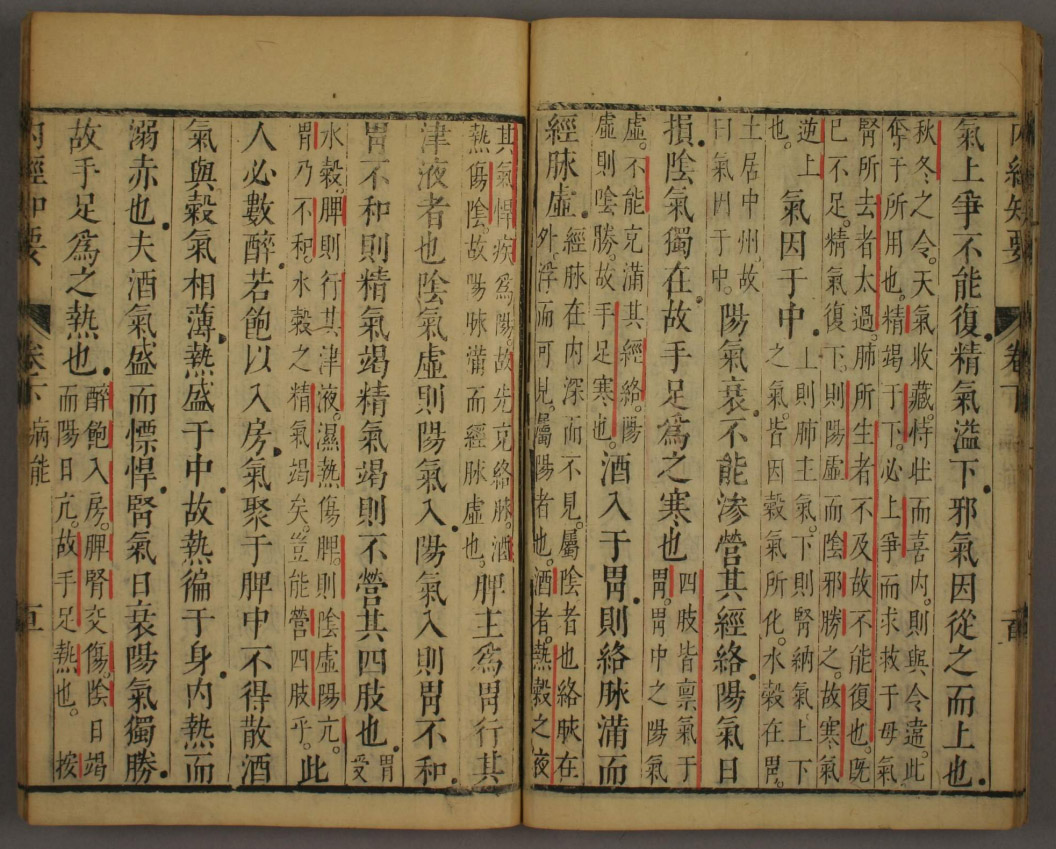 內經知要 卷下
氣上爭不能復精氣溢下邪氣因從之而上也
秋冬之令天氣收藏恃壯而喜內則與令違此
奪于所用也精竭于下必上爭而求救于母氣
腎所去者太過肺所生者不及故不能復也旣
已不足精氣復下則陽虛而陰邪勝之故寒氣
逆上
也
氣因于中
上則肺主氣下則腎納氣上下
之氣皆因穀氣所化水穀在胃
土居中州故
曰氣因于中
陽氣衰不能滲營其經絡陽氣日
損陰氣獨在故手足爲之寒也
四肢皆禀氣于
胃胃中之陽氣
虛不能充滿其經絡陽
虛則陰勝故手足寒也
酒入于胃則絡脉滿而
經脉虛
經脉在內深而不見屬陰者也絡脉在
外浮而可見屬陽者也酒者熱穀之液
其氣悍疾爲陽故先充絡脉酒
熱傷陰故陽脉滿而經脉虛也
脾主爲胃行其
津液者也陰氣虛則陽氣入陽氣入則胃不和
胃不和則精氣竭精氣竭則不營其四肢也
胃
受
水穀脾則行其津液濕熱傷脾則陰虛陽亢
胃乃不和水穀之精氣竭矣豈能營四肢乎
此
人必數醉若飽以入房氣聚于脾中不得散酒
氣與穀氣相薄熱盛于中故熱徧于身內熱而
溺赤也夫酒氣盛而慓悍腎氣日衰陽氣獨勝
故手足爲之熱也
醉飽入房脾腎交傷陰日竭
而陽日亢故手足熱也 按
內經知要 卷下 病能